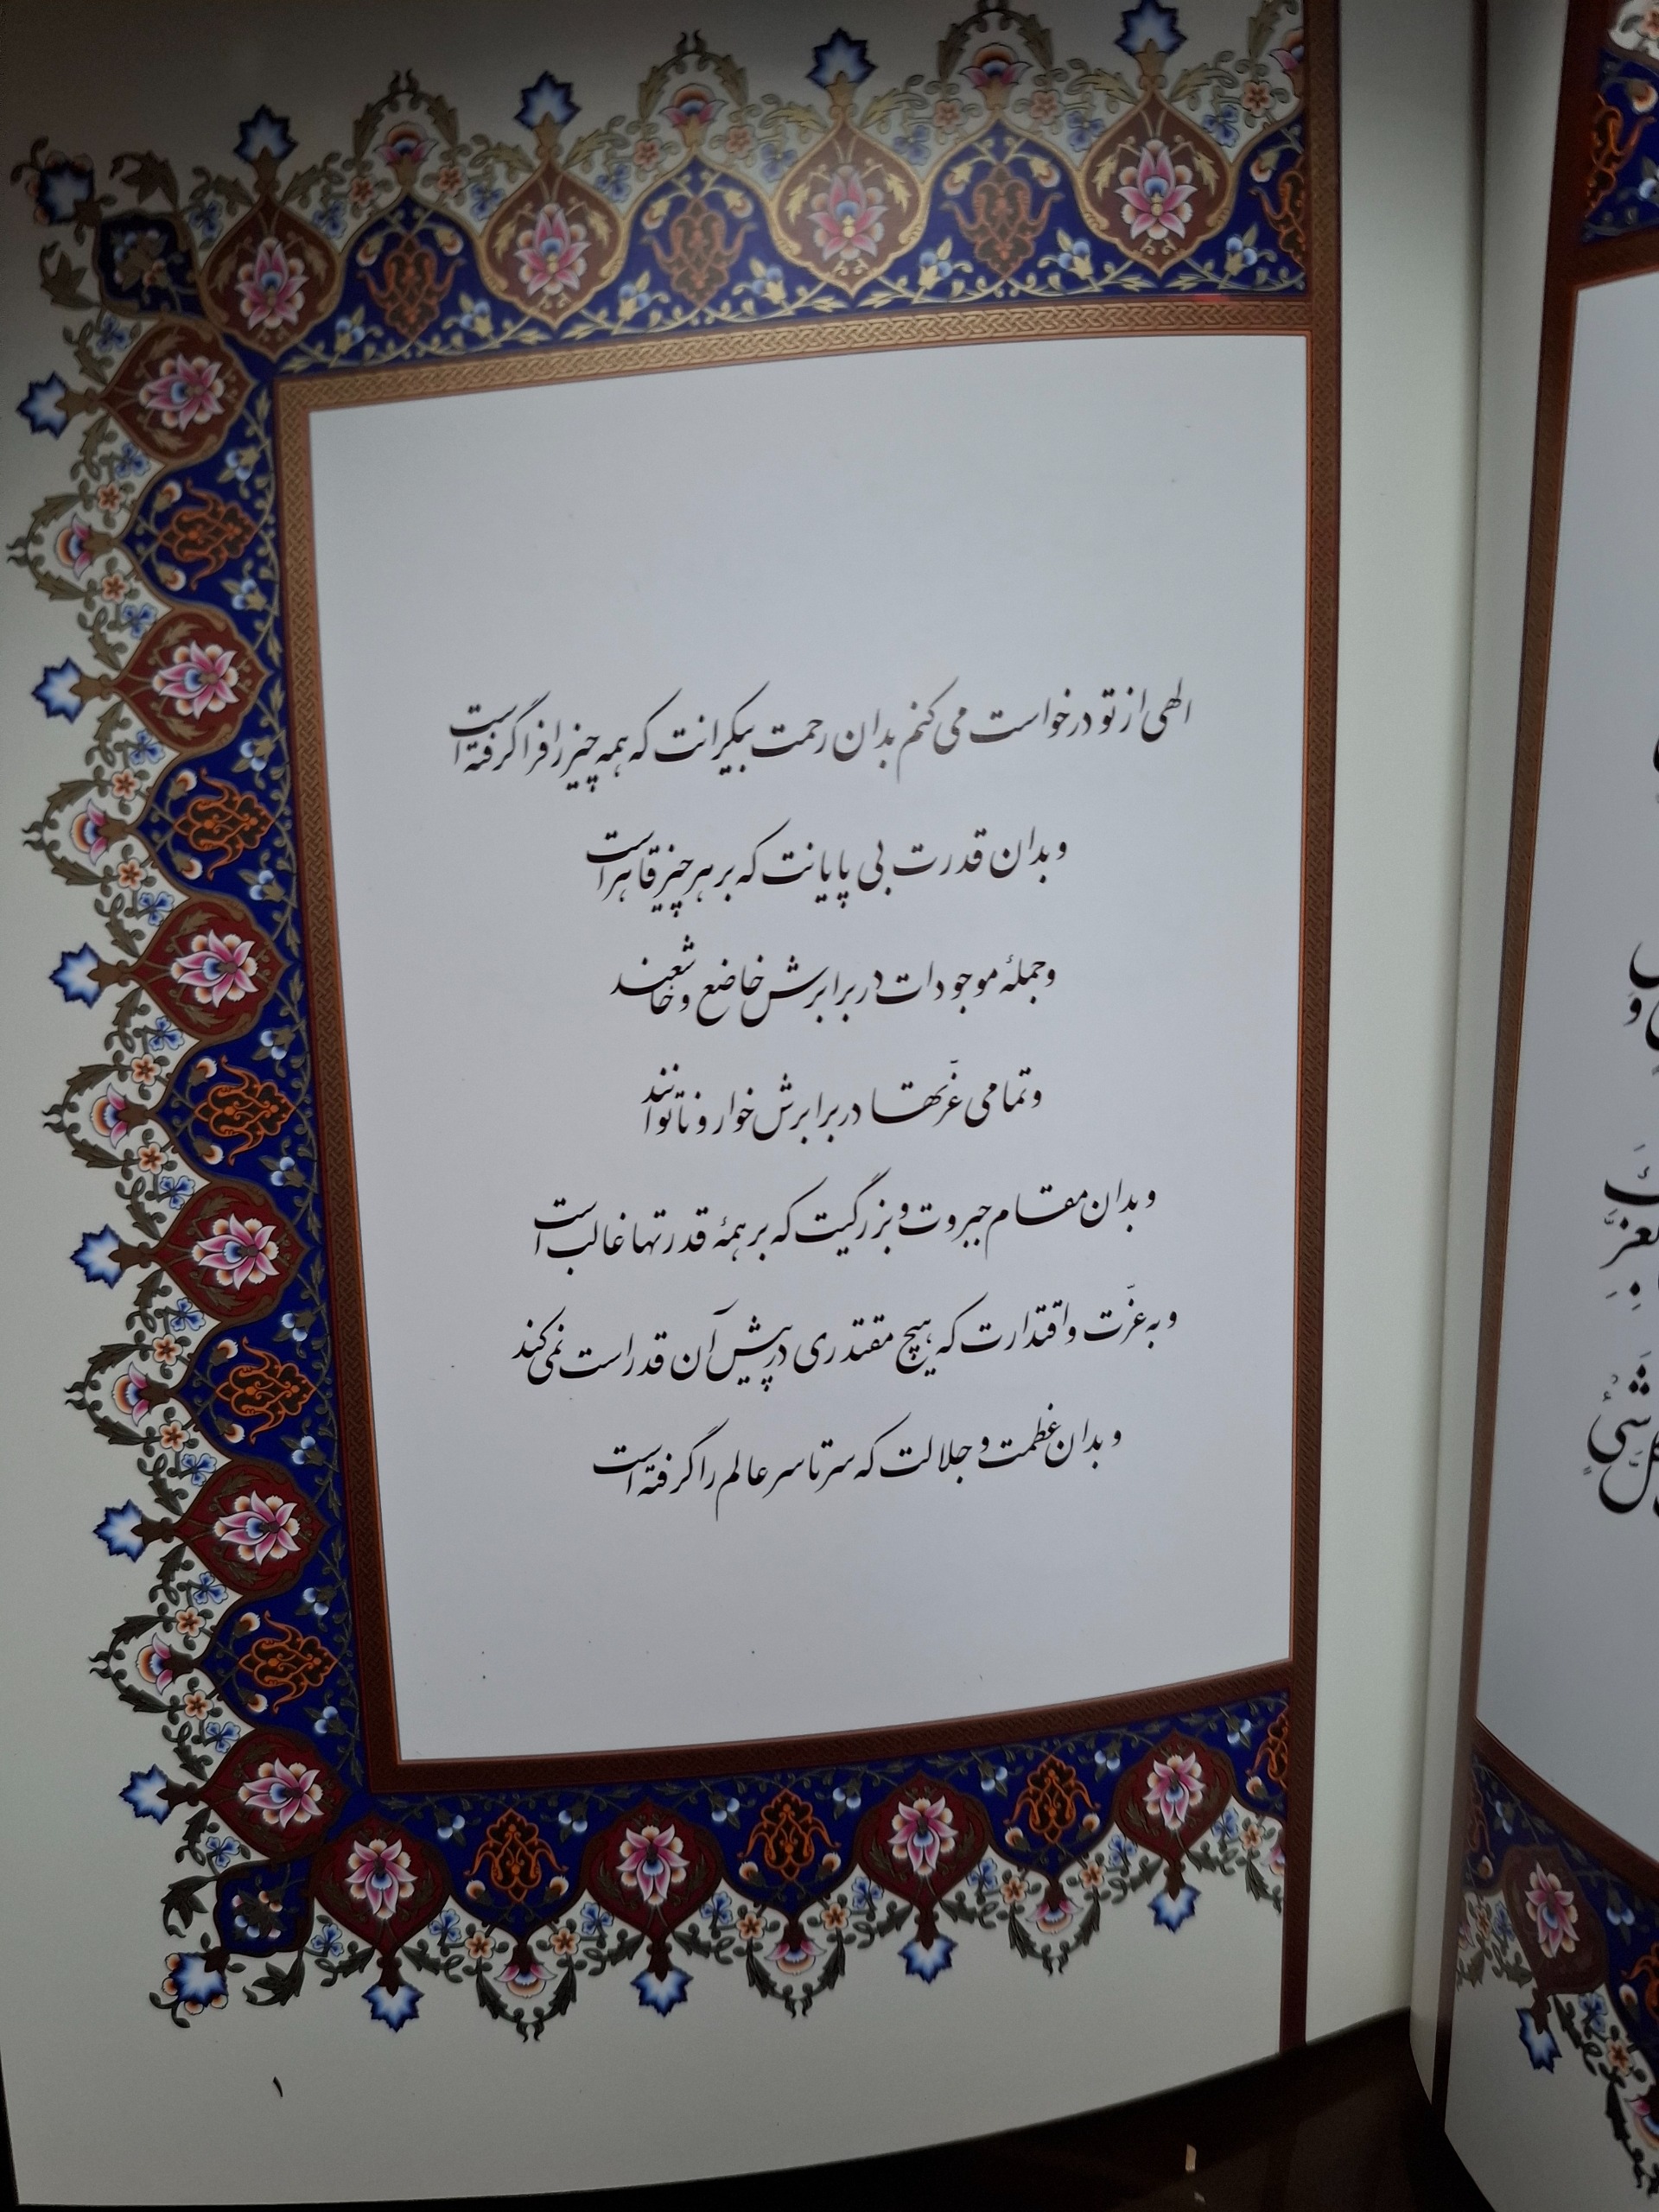 الهی از تو درخواست می کنم بدان رحمت بیکرانت که همه چیز را فرا گرفته است
و بدان قدرت بی پایانت که بر هر چیز قاهر است
و جملۀ موجودات در برابرش خاضع و خاشعند
و تمامی عزّتها در برابرش خوار و ناتوانند
و بدان مقام جبروت و بزرگیت که بر همۀ قدرتها غالب است
و به عزّت و اقتدارت که هیچ مقتدری در پیش آن قد راست نمی کند
و بدان عظمت و جلالت که سرتاسر عالم را گرفته است
۱
شَیْءٍ